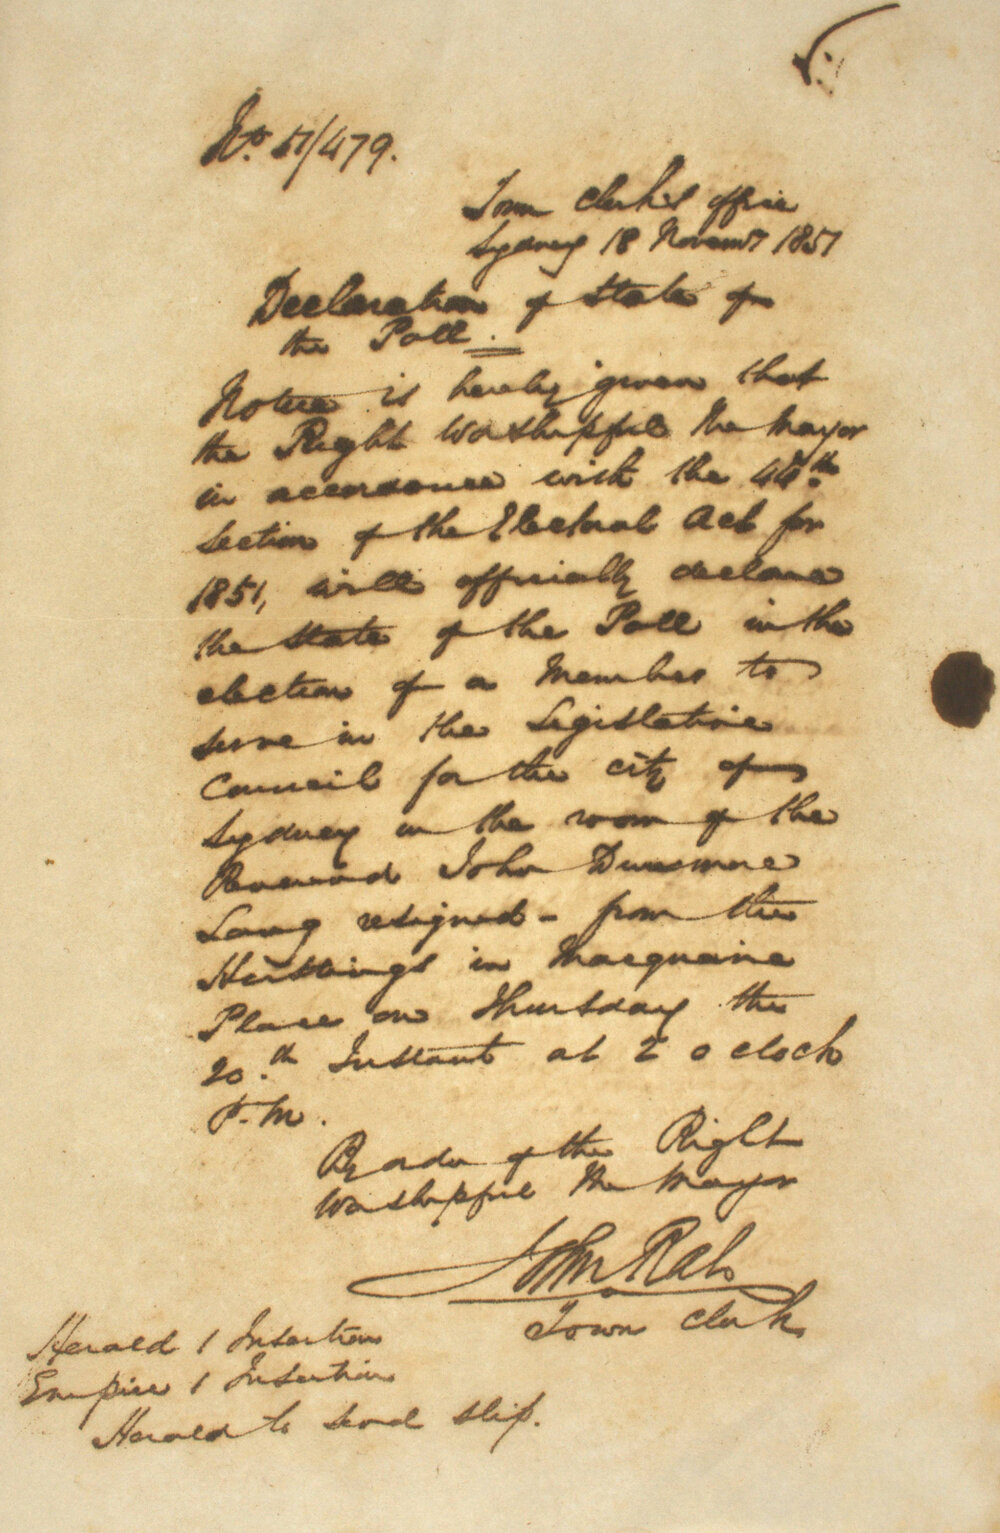 No. 51/479.
Town Clerk's office
Sydney 18 Novembr 1851
Declaration of State of
the Poll.
Notice is hereby given that
the Right Worshipful the Mayor
in accordance with the 44th
section of the Electoral Act for
1851, will officially declare
the state of the Poll in the
election of a Member to
serve in the Legislative
Council for the city of
Sydney in the room of the
Reverend John Dunsmore
Lang resigned - from the
Hustings in Macquarie
Place on Thursday the
20th Instant at 2 o clock
P.M.
By order of the Right
Worshipful the Mayor
John Rae
Town Clerk
Herald 1 Insertion
Empire 1 Insertion
Herald to send slip.